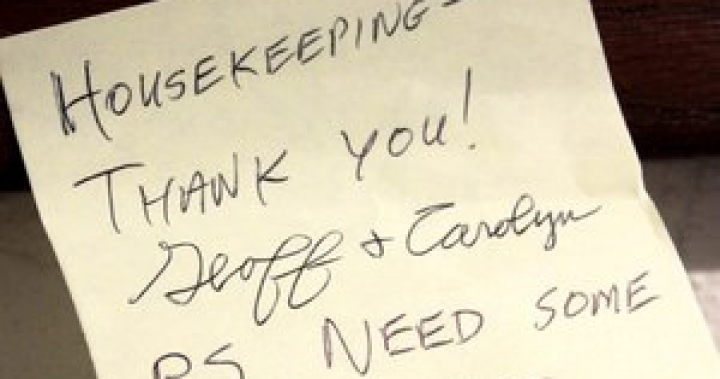 HOUSEKEEPING-
THANK YOU!
Geoff + Carolyn
PS NEED SOME